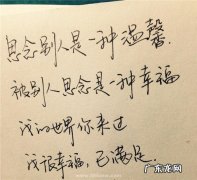 思念别人是一种温馨.
被别人思念是一种幸福
我的世界你来过
我很幸福,已满足.
广东龙网